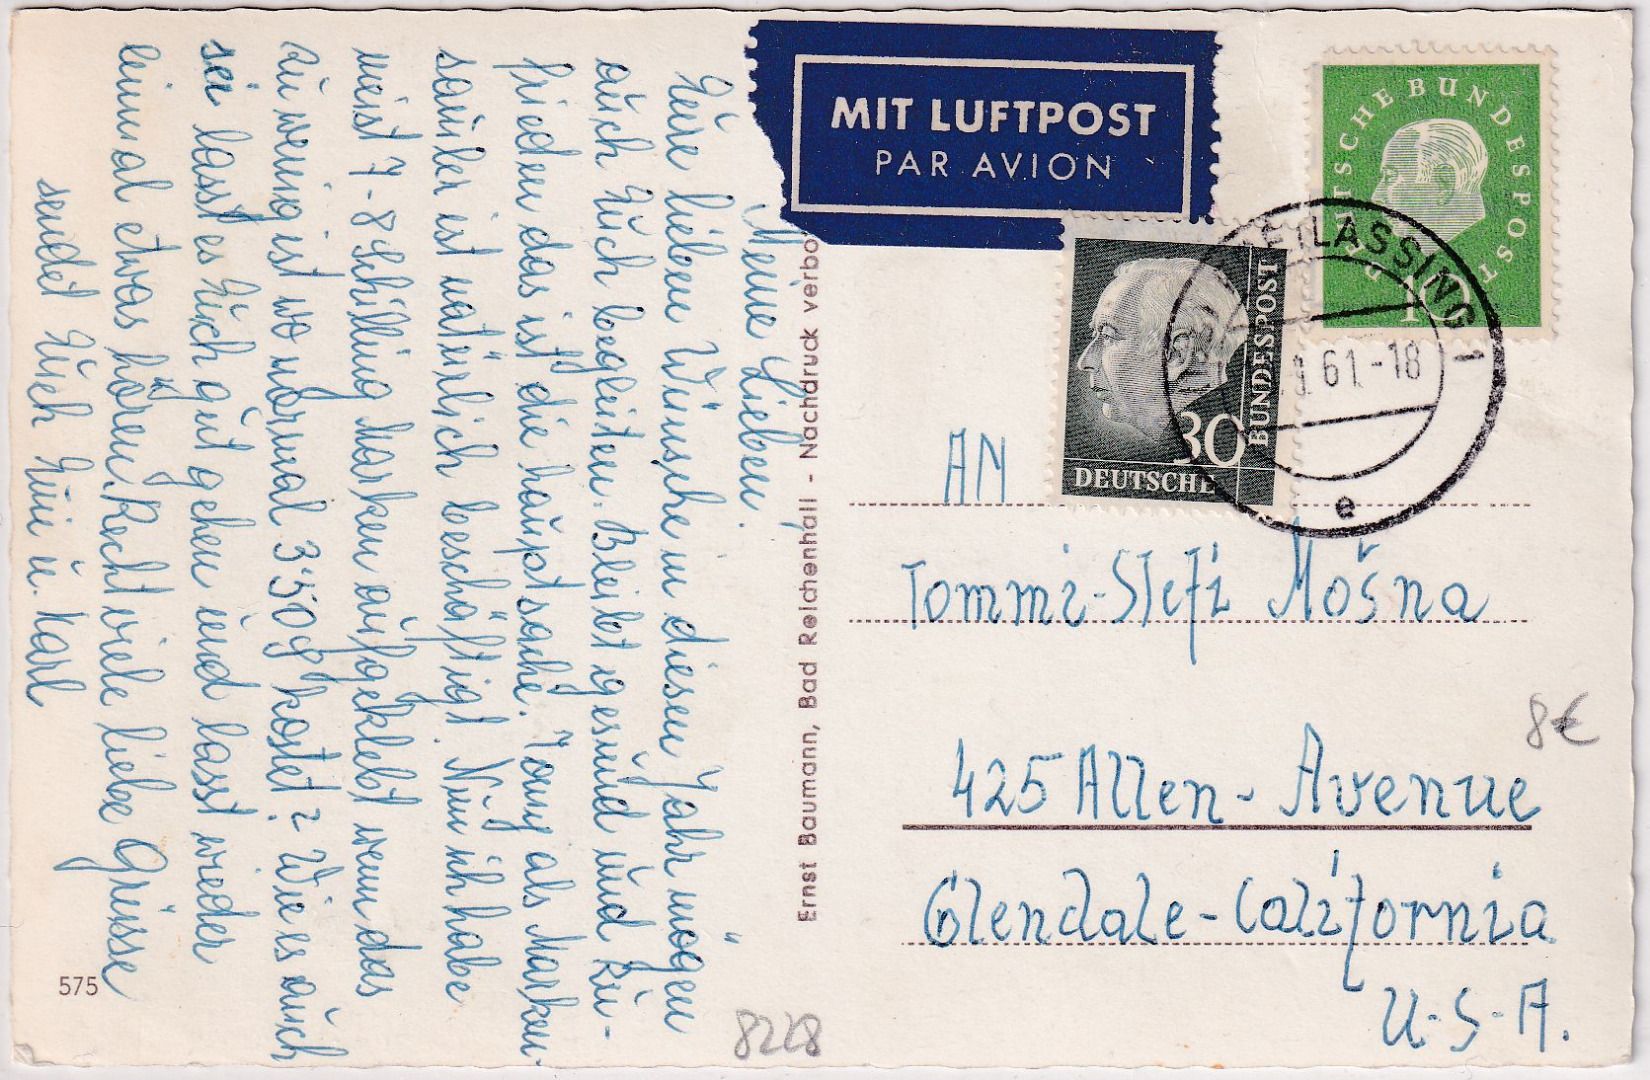 Meine Lieben,
Eure lieben Wünsche in diesem Jahr mögen
auch Euch begleiten. Bleibt gesund und zu-
frieden das ist die hauptsache. Tony als Marken
samler ist natürlich beschäftigt. Nun ich habe
meist 7-8 Schilling Marken aufgeklebt wenn das
zu wenig ist wo normal 3'50 g kostet? Wie es auch
sei lasst es Euch gut gehen und lasst wieder
einmal etwas hören. Recht viele liebe Grüsse
sendet Euch u. Karl
575
8228
Ernst Baumann, Bad Reichenhall - Nachdruck verbo
MIT LUFTPOST
PAR AVION
DEUTSCHE BUNDESPOST
10
30
BUNDESPOST
DEUTSCHE
FREILASSING 1
61.-18
e
AN
Tommi-Stefi Mošna
425 Allen-Avenue
Glendale-California
U-S-A.
8€